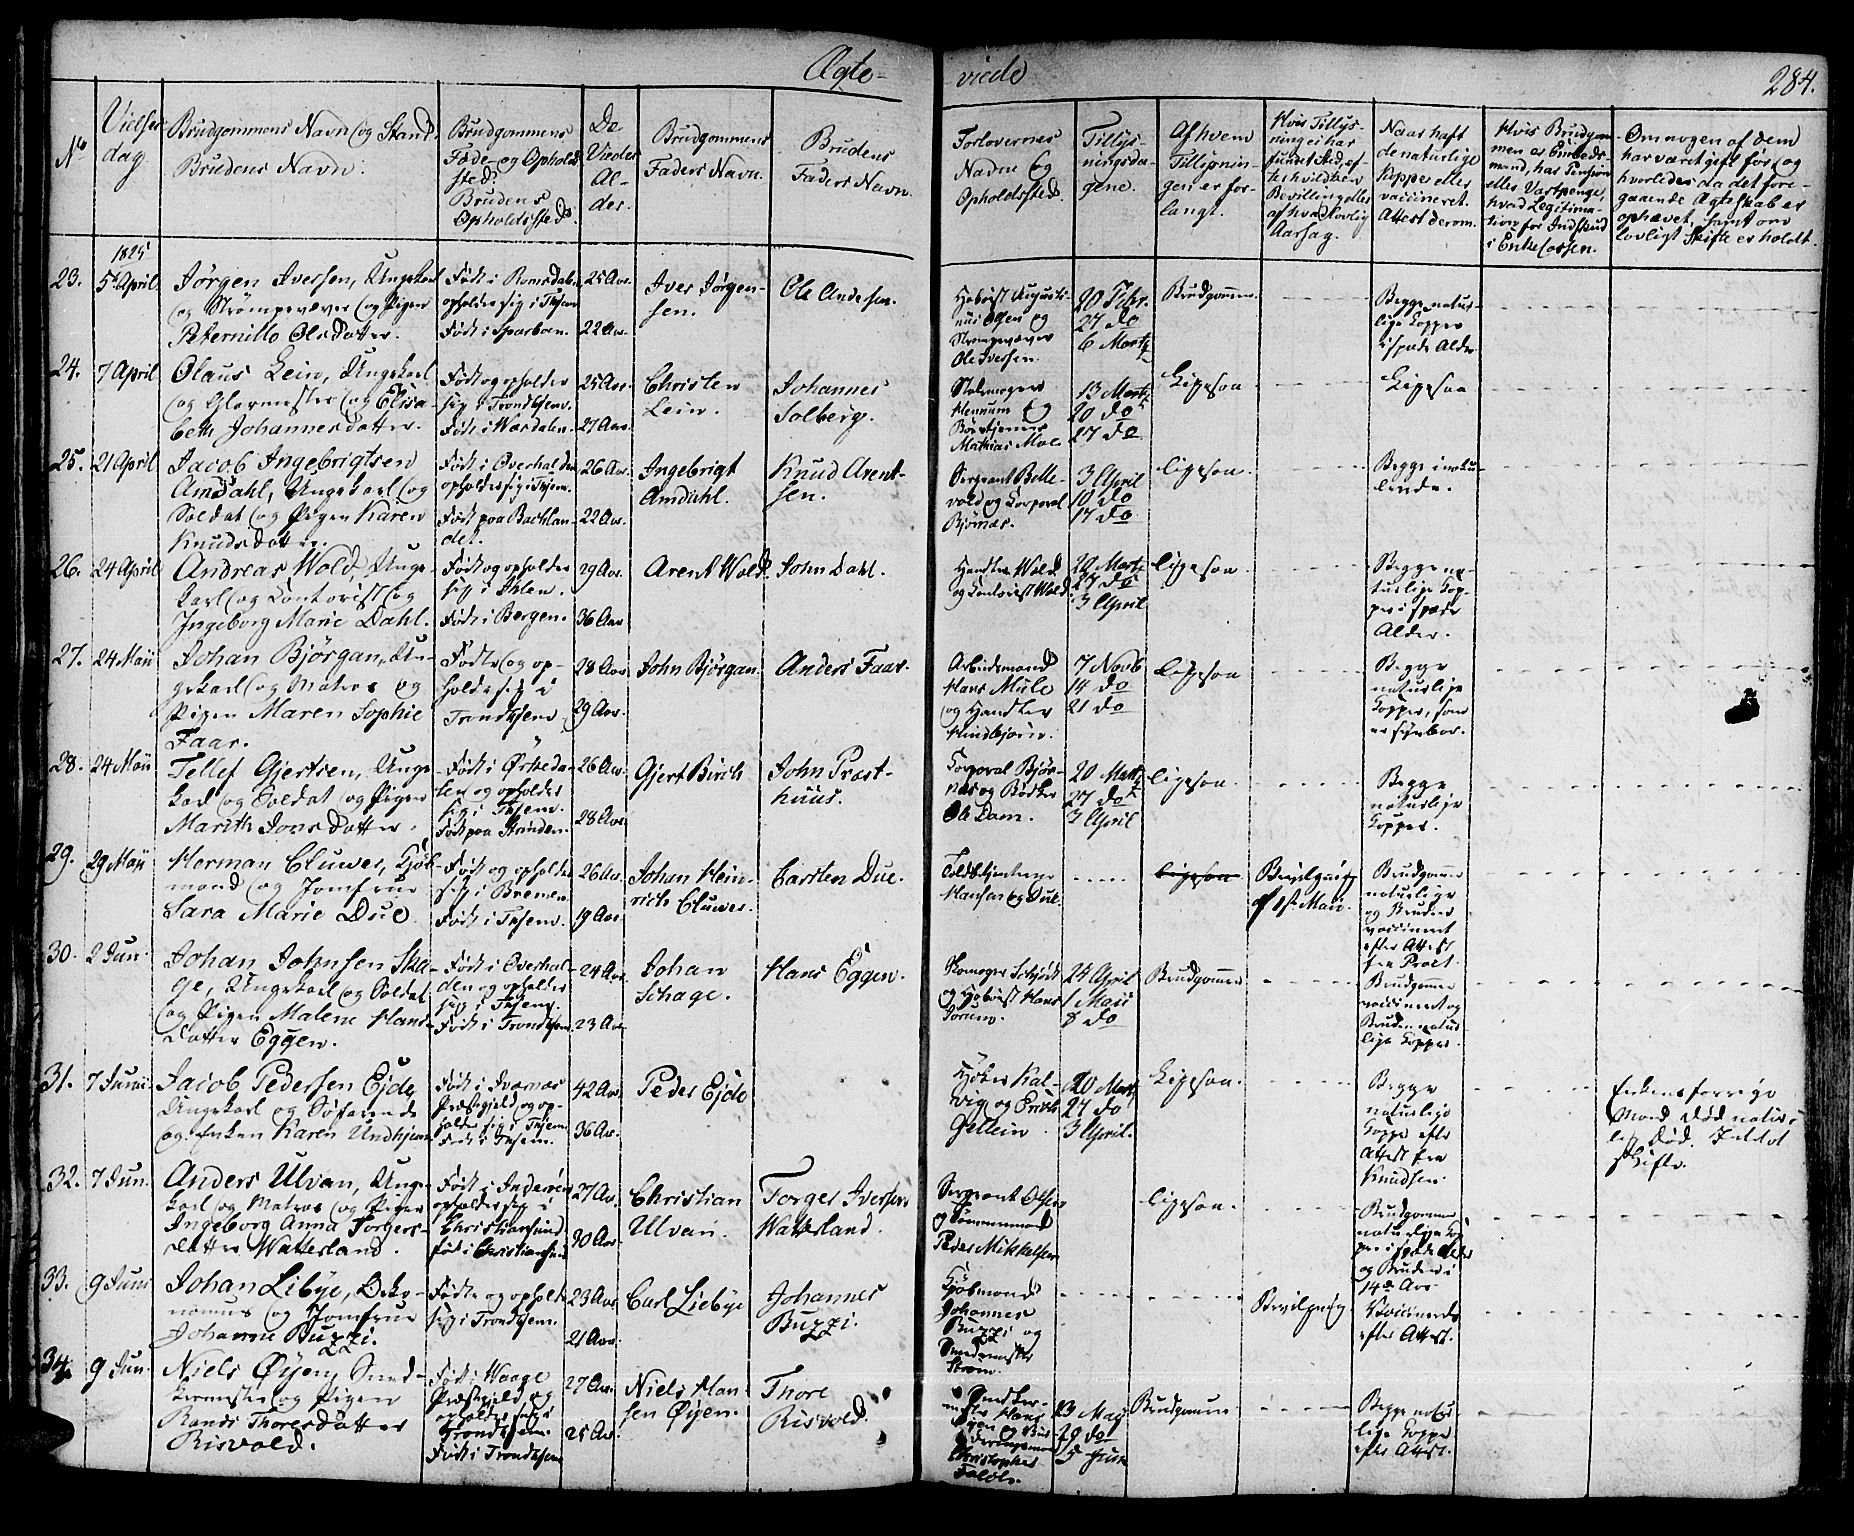 Ægte-
viede
284.
No
Vielses
dag.
Brudgommens Navn og Stand.
Brudens Navn.
Brudgommens
Føde- og Opholds
sted.
Brudens
Opholdssted.
De
Viedes
Al-
der.
Brudgommens
Faders Navn.
Brudens
Faders Navn.
Forlovernes
Navne og
Opholdssted.
Tillys-
ningsda-
gene.
Af hvem
Tillysnin-
gen er for-
langt.
Hvis Tillys-
ning ei har
fundet sted, ef-
ter hvilken
Bevilling eller
af hvad lovlig
Aarsag.
Naar haft
de naturlige
Kopper eller
vaccineret.
Attest derom.
Hvis Brudgom-
men er Embeds-
mand, har Pension
eller Vartpenge,
hvad Legitima-
tion for Indskud
i Enkecassen.
Om nogen af dem
har været gift før, og
hvorledes da det fore-
gaaende Ægteskab er
ophævet, samt om
lovligt Skifte er holdt.
1825
23. 5 April
Jørgen Iversen, Ungekarl
og Strømpevæver og Pigen
Peternille Olsdatter.
Født i Romsdalen
opholder sig i Thjem
Født i Sparboen.
25 Aar.
22 Aar.
Iver Jørgen-
sen.
Ole Andersen.
Hoboist Augusti-
nus Olsen og
Strømpevæver
Ole Iversen.
20 Febr.
27 do
6 Martz
Brudgommen
Begge natur-
lige Kopper
i spæde Alder
24. 7 April
Olaus Lein, Ungekarl
og Glarmester og Elisa-
beth Johannesdatter.
Født og opholder
sig i Trondhjem.
Født i Værdalen.
25 Aar.
27 Aar.
Christen
Lein.
Johannes
Solberg.
Mathias Moe
13 Martz
20 do
27 do
Ligesaa
Ligesaa
25. 21 April
Jacob Ingebrigtsen
Amdahl, Ungekarl og
Soldat og Pigen Karen
Knudsdatter.
Født i Overhalden
opholder sig i Thjem.
Født paa Baklan-
det.
26 Aar.
22 Aar.
Ingebrigt
Amdahl.
Knud Arent-
sen.
Sergeant Belle-
vold og Corporal
Bjørnær.
3 April
10 do
17 do
Ligesaa.
26. 24 April
Andreas Wold, Unge-
karl og Contorist og
Ingeborg Marie Dahl.
Født og opholder
sig i Ihlen.
Født i Bergen.
29 Aar.
36 Aar
Arent Wold.
John Dahl.
Handler Wold
og Contorist Wold.
20 Martz
27 do
3 April
Ligesaa.
Begge na-
turlige Kop-
per i spæde
Alder.
27. 24 Maii
Johan Bjørgan, Un-
gekarl og Matros og
Pigen Maren Sophie
Faar.
Fødte og op-
holde sig i
Trondhjem.
28 Aar
29 Aar.
John Bjørgan.
Anders Faar.
Arbeidsmand
Hans Mule
og Handler
7 Novb
14 do
21 do
Ligesaa
Begge
naturlige
Kopper, som
er synbar.
28. 24 Maii
Tellef Gjertsen, Unge-
karl og Soldat og Pigen
Marith Jonsdatter.
Født i Ørkeda-
len og opholder
sig i Thjem.
Født paa Strinden.
26 Aar.
28 Aar.
Gjert Birch
John Præst-
huus.
Corporal Bjør-
nær og Bødker
Ole Dam.
20 Martz
27 do
3 April
Ligesaa.
Begge
naturlige
Kopper.
29. 29 Maii
Herman Cluwer, Kjøb-
mand og Jomfrue
Sara Marie Due.
Født og opholder
sig i Bremen
Født i Thjem.
26 Aar.
19 Aar
Johan Hein-
rich Cluwer.
Carsten Due.
Hansen og Due.
Ligesaa
Bevilgning
af 1st Maii.
Brudgommen
naturlige
og Bruden
vaccineret
efter Attest
fra
30. 2 Jun.
Johan Johnsen Ska-
ge, Ungekarl og Soldat
og Pigen Malene Hans-
datter Eggen.
Født i Overhal-
den og opholder
sig i Thjem.
Født i Trondhjem
24 Aar.
23 Aar.
Johan
Schage.
Hans Eggen.
Skomager Schjødt
og Hoboist Hans
24 April
1 Maii
8 do
Brudgommen
Brudgommen
vaccineret og
Bruden natur-
lige Kopper.
31. 7 Junii
Jacob Pedersen Ejde,
Ungekarl og Søfarende
og Enken Karen Undhjem
Født i
Præstegjeld og op-
holder sig i Thjem.
Født i Thjem.
42 Aar
36 Aar.
Peder Ejde
og Erich
Gellein.
20 Martz
27 do
3 April.
Ligesaa.
Begge
naturlige
Koppe efter
Attest fra
Knudsen.
Enkens forrige
Mand død natur-
lig Død. Holdt
Skifte.
32. 7 Jun.
Anders Ulvan, Unge-
karl og Matros og Pigen
Ingeborg Anna Torgers-
datter Watterland.
Født i Inderøen
opholder sig i
Christiansund
født i Christiansund
27 Aar.
30 Aar
Christian
Ulvan.
Torger Iversen
Watterland.
Sergeant Olsen
og
Peder Mikkelsen
Ligesaa.
Brudgommen
naturlige Kop-
per i spæde Alder
og Bruden i
14de Aar
33. 9 Junii
Johan Libye, Oeko-
nomus og Jomfrue
Johanne Buzzi.
Fødte og opholde
sig i Trondhjem.
23 Aar.
21 Aar.
Carl Liebye
Johannes
Buzzi.
Kjøbmand
Johannes
Buzzi og
Strøm.
Bevilgning
Vaccinerede
efter Attest.
34. 9 Jun.
Niels Øyen, Sned-
kermester og Pigen
Randi Thoresdatter
Risvold.
Født i Waage
Præstegjeld og
opholder sig i
Trondhjem.
Født i Trondhjem
27 Aar.
25 Aar.
Niels Han-
sen Øyen.
Thore
Risvold.
Snedker-
mester Hans
Øyen og
Christopher
23 Maj
29 do
5 Juni
Brudgommen
Begge natur-
lige Koppe
efter Attest.